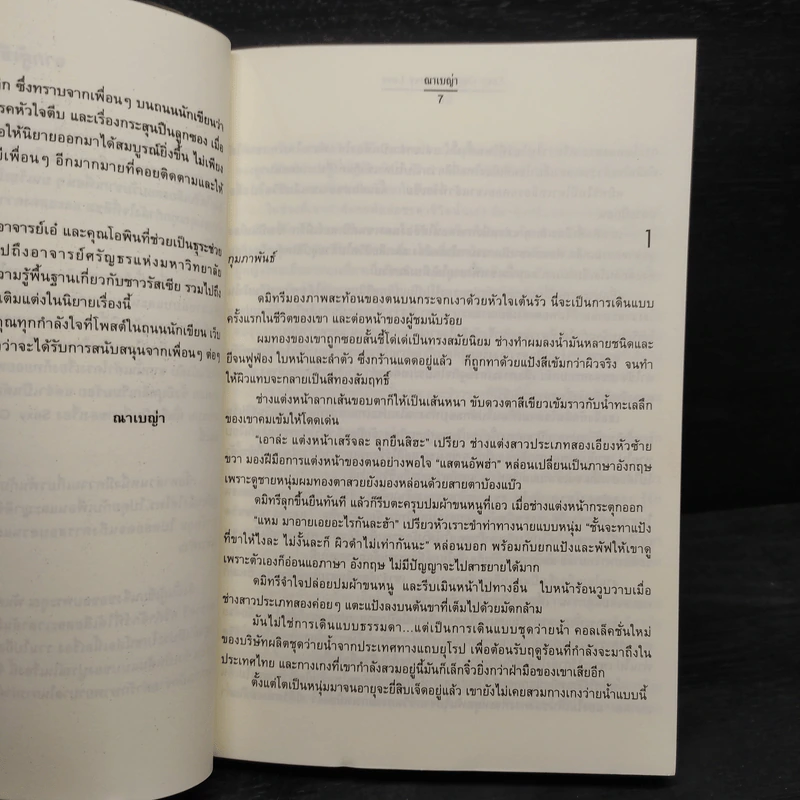 ิก ซึ่งทราบจากเพื่อนๆ บนถนนนักเขียนว่า
รคหัวใจตีบ และเรื่องกระสุนปืนลูกซอง เมื่อ
อให้นิยายออกมาได้สมบูรณ์ยิ่งขึ้น ไม่เพียง
มีเพื่อนๆ อีกมากมายที่คอยติดตามและให้
อาจารย์เอ๋ และคุณโอพินที่ช่วยเป็นธุระช่วย
ปถึงอาจารย์ศรัญธรแห่งมหาวิทยาลัย
วามรู้พื้นฐานเกี่ยวกับชาวรัสเซีย รวมไปถึง
เติมแต่งในนิยายเรื่องนี้
คุณทุกกำลังใจที่โพสต์ในถนนนักเขียน เว็บ
ว่าจะได้รับการสนับสนุนจากเพื่อนๆ ต่อๆ
ณาเบญ่า
ณาเบญ่า
7
1
กุมภาพันธ์
ดมิทรีมองภาพสะท้อนของตนบนกระจกเงาด้วยหัวใจเต้นรัว นี่จะเป็นการเดินแบบ
ครั้งแรกในชีวิตของเขา และต่อหน้าของผู้ชมนับร้อย
ผมทองของเขาถูกซอยสั้นชี้โด่เด่เป็นทรงสมัยนิยม ช่างทำผมลงน้ำมันหลายชนิดและ
ยีจนฟูฟ่อง ใบหน้าและลำตัว ซึ่งกร้านแดดอยู่แล้ว ก็ถูกทาด้วยแป้งสีเข้มกว่าผิวจริง จนทำ
ให้ผิวแทบจะกลายเป็นสีทองสัมฤทธิ์
ช่างแต่งหน้าลากเส้นขอบตาก็ให้เป็นเส้นหนา ขับดวงตาสีเขียวเข้มราวกับน้ำทะเลลึก
ของเขาคมเข้มให้โดดเด่น
“เอาล่ะ แต่งหน้าเสร็จละ ลุกยืนสิฮะ” เปรียว ช่างแต่งสาวประเภทสองเอียงหัวซ้าย
ขวา มองฝีมือการแต่งหน้าของตนอย่างพอใจ “แสตนอัพฮ่า” หล่อนเปลี่ยนเป็นภาษาอังกฤษ
เพราะดูชายหนุ่มผมทองตาสวยยังมองหล่อนด้วยสายตาบ้องแบ๊ว
ดมิทรีลุกขึ้นยืนทันที แล้วก็รีบตะครุบปมผ้าขนหนูที่เอว เมื่อช่างแต่งหน้ากระตุกออก
“แหม มาอายเอยอะไรกันละฮ้า” เปรียวหัวเราะขำท่าทางนายแบบหนุ่ม “ชั้นจะทาแป้ง
ที่ขาให้ไงละ ไม่งั้นละก็ ผิวดำไม่เท่ากันนะ” หล่อนบอก พร้อมกับยกแป้งและพัฟให้เขาดู
เพราะตัวเองก็อ่อนแอภาษา อังกฤษ ไม่มีปัญญาจะไปสาธยายได้มาก
ดมิทรีจำใจปล่อยปมผ้าขนหนู และรีบเมินหน้าไปทางอื่น ใบหน้าร้อนวูบวาบเมื่อ
ช่างสาวประเภทสองค่อยๆ แตะแป้งลงบนต้นขาที่เต็มไปด้วยมัดกล้าม
มันไม่ใช่การเดินแบบธรรมดา...แต่เป็นการเดินแบบชุดว่ายน้ำ คอลเล็คชั่นใหม่
ของบริษัทผลิตชุดว่ายน้ำจากประเทศทางแถบยุโรป เพื่อต้อนรับฤดูร้อนที่กำลังจะมาถึงใน
ประเทศไทย และกางเกงที่เขากำลังสวมอยู่นี้มันก็เล็กจิ๋วยิ่งกว่าฝ่ามือของเขาเสียอีก
ตั้งแต่โตเป็นหนุ่มมาจนอายุจะยี่สิบเจ็ดอยู่แล้ว เขายังไม่เคยสวมกางเกงว่ายน้ำแบบนี้